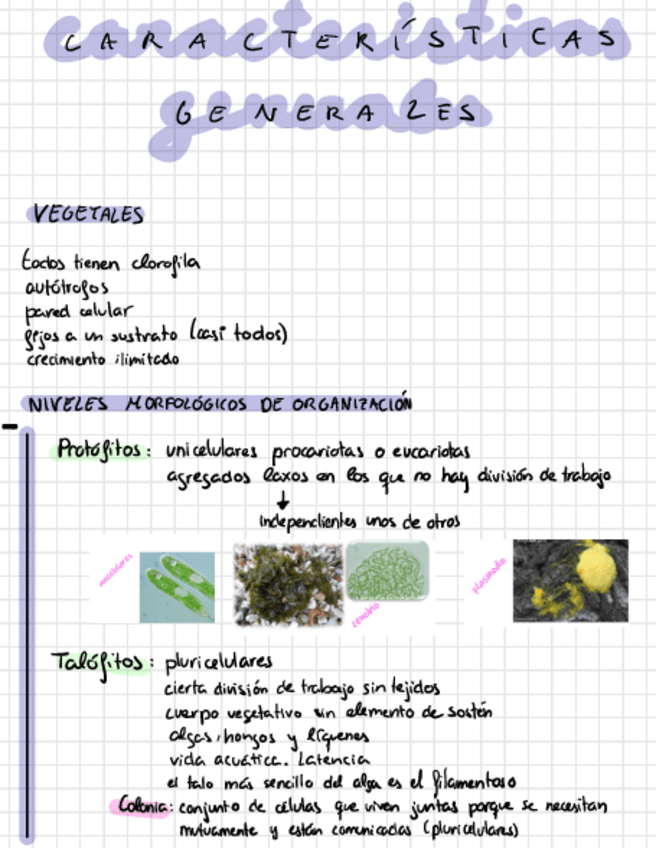 CARACTERÍSTICAS
GENERALES
VEGETALES
todos tienen clorofila
autótrofos
pared celular
fijos a un sustrato (casi todos)
crecimiento ilimitado
NIVELES MORFOLÓGICOS DE ORGANIZACIÓN
Protófitos: unicelulares procariotas o eucariotas
agregados laxos en los que no hay división de trabajo
↓
Independientes unos de otros
unicelulares
cenobio
plasmodio
Talófitos: pluricelulares
cierta división de trabajo sin tejidos
cuerpo vegetativo sin elemento de sostén
algas, hongos y líquenes
vida acuática. Latencia
el talo más sencillo del alga es el filamentoso
Colonia: conjunto de células que viven juntas porque se necesitan
mutuamente y están comunicadas (pluricelulares)